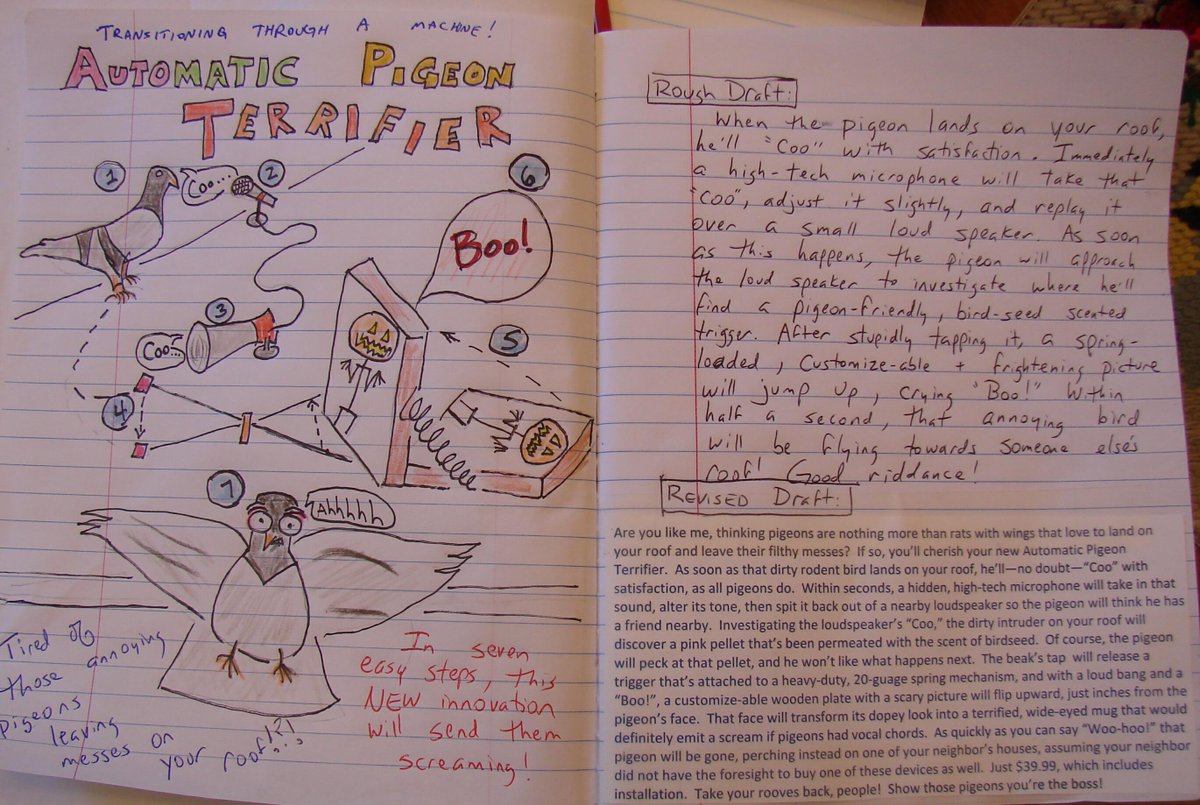 TRANSITIONING THROUGH A MACHINE!
AUTOMATIC PIGEON
TERRIFIER
1
Coo...
2
3
Coo...
4
5
6
Boo!
7
Ahhhhh
Tired of
those annoying
pigeons
leaving
messes on
your roof!?!
In seven
easy steps, this
NEW innovation
will send them
screaming!
Rough Draft:
When the pigeon lands on your roof,
he'll "Coo" with satisfaction. Immediately
a high-tech microphone will take that
"coo", adjust it slightly, and replay it
over a small loud speaker. As soon
as this happens, the pigeon will approach
the loud speaker to investigate where he'll
find a pigeon-friendly, bird-seed scented
trigger. After stupidly tapping it, a spring-
loaded, customize-able + frightening picture
will jump up, crying "Boo!" Within
half a second, that annoying bird
will be flying towards someone else's
roof! Good riddance!
REVISED Draft:
Are you like me, thinking pigeons are nothing more than rats with wings that love to land on
your roof and leave their filthy messes? If so, you'll cherish your new Automatic Pigeon
Terrifier. As soon as that dirty rodent bird lands on your roof, he'll—no doubt—"Coo" with
satisfaction, as all pigeons do. Within seconds, a hidden, high-tech microphone will take in that
sound, alter its tone, then spit it back out of a nearby loudspeaker so the pigeon will think he has
a friend nearby. Investigating the loudspeaker's "Coo," the dirty intruder on your roof will
discover a pink pellet that's been permeated with the scent of birdseed. Of course, the pigeon
will peck at that pellet, and he won't like what happens next. The beak's tap will release a
trigger that's attached to a heavy-duty, 20-guage spring mechanism, and with a loud bang and a
"Boo!", a customize-able wooden plate with a scary picture will flip upward, just inches from the
pigeon's face. That face will transform its dopey look into a terrified, wide-eyed mug that would
definitely emit a scream if pigeons had vocal chords. As quickly as you can say "Woo-hoo!" that
pigeon will be gone, perching instead on one of your neighbor's houses, assuming your neighbor
did not have the foresight to buy one of these devices as well. Just $39.99, which includes
installation. Take your rooves back, people! Show those pigeons you're the boss!